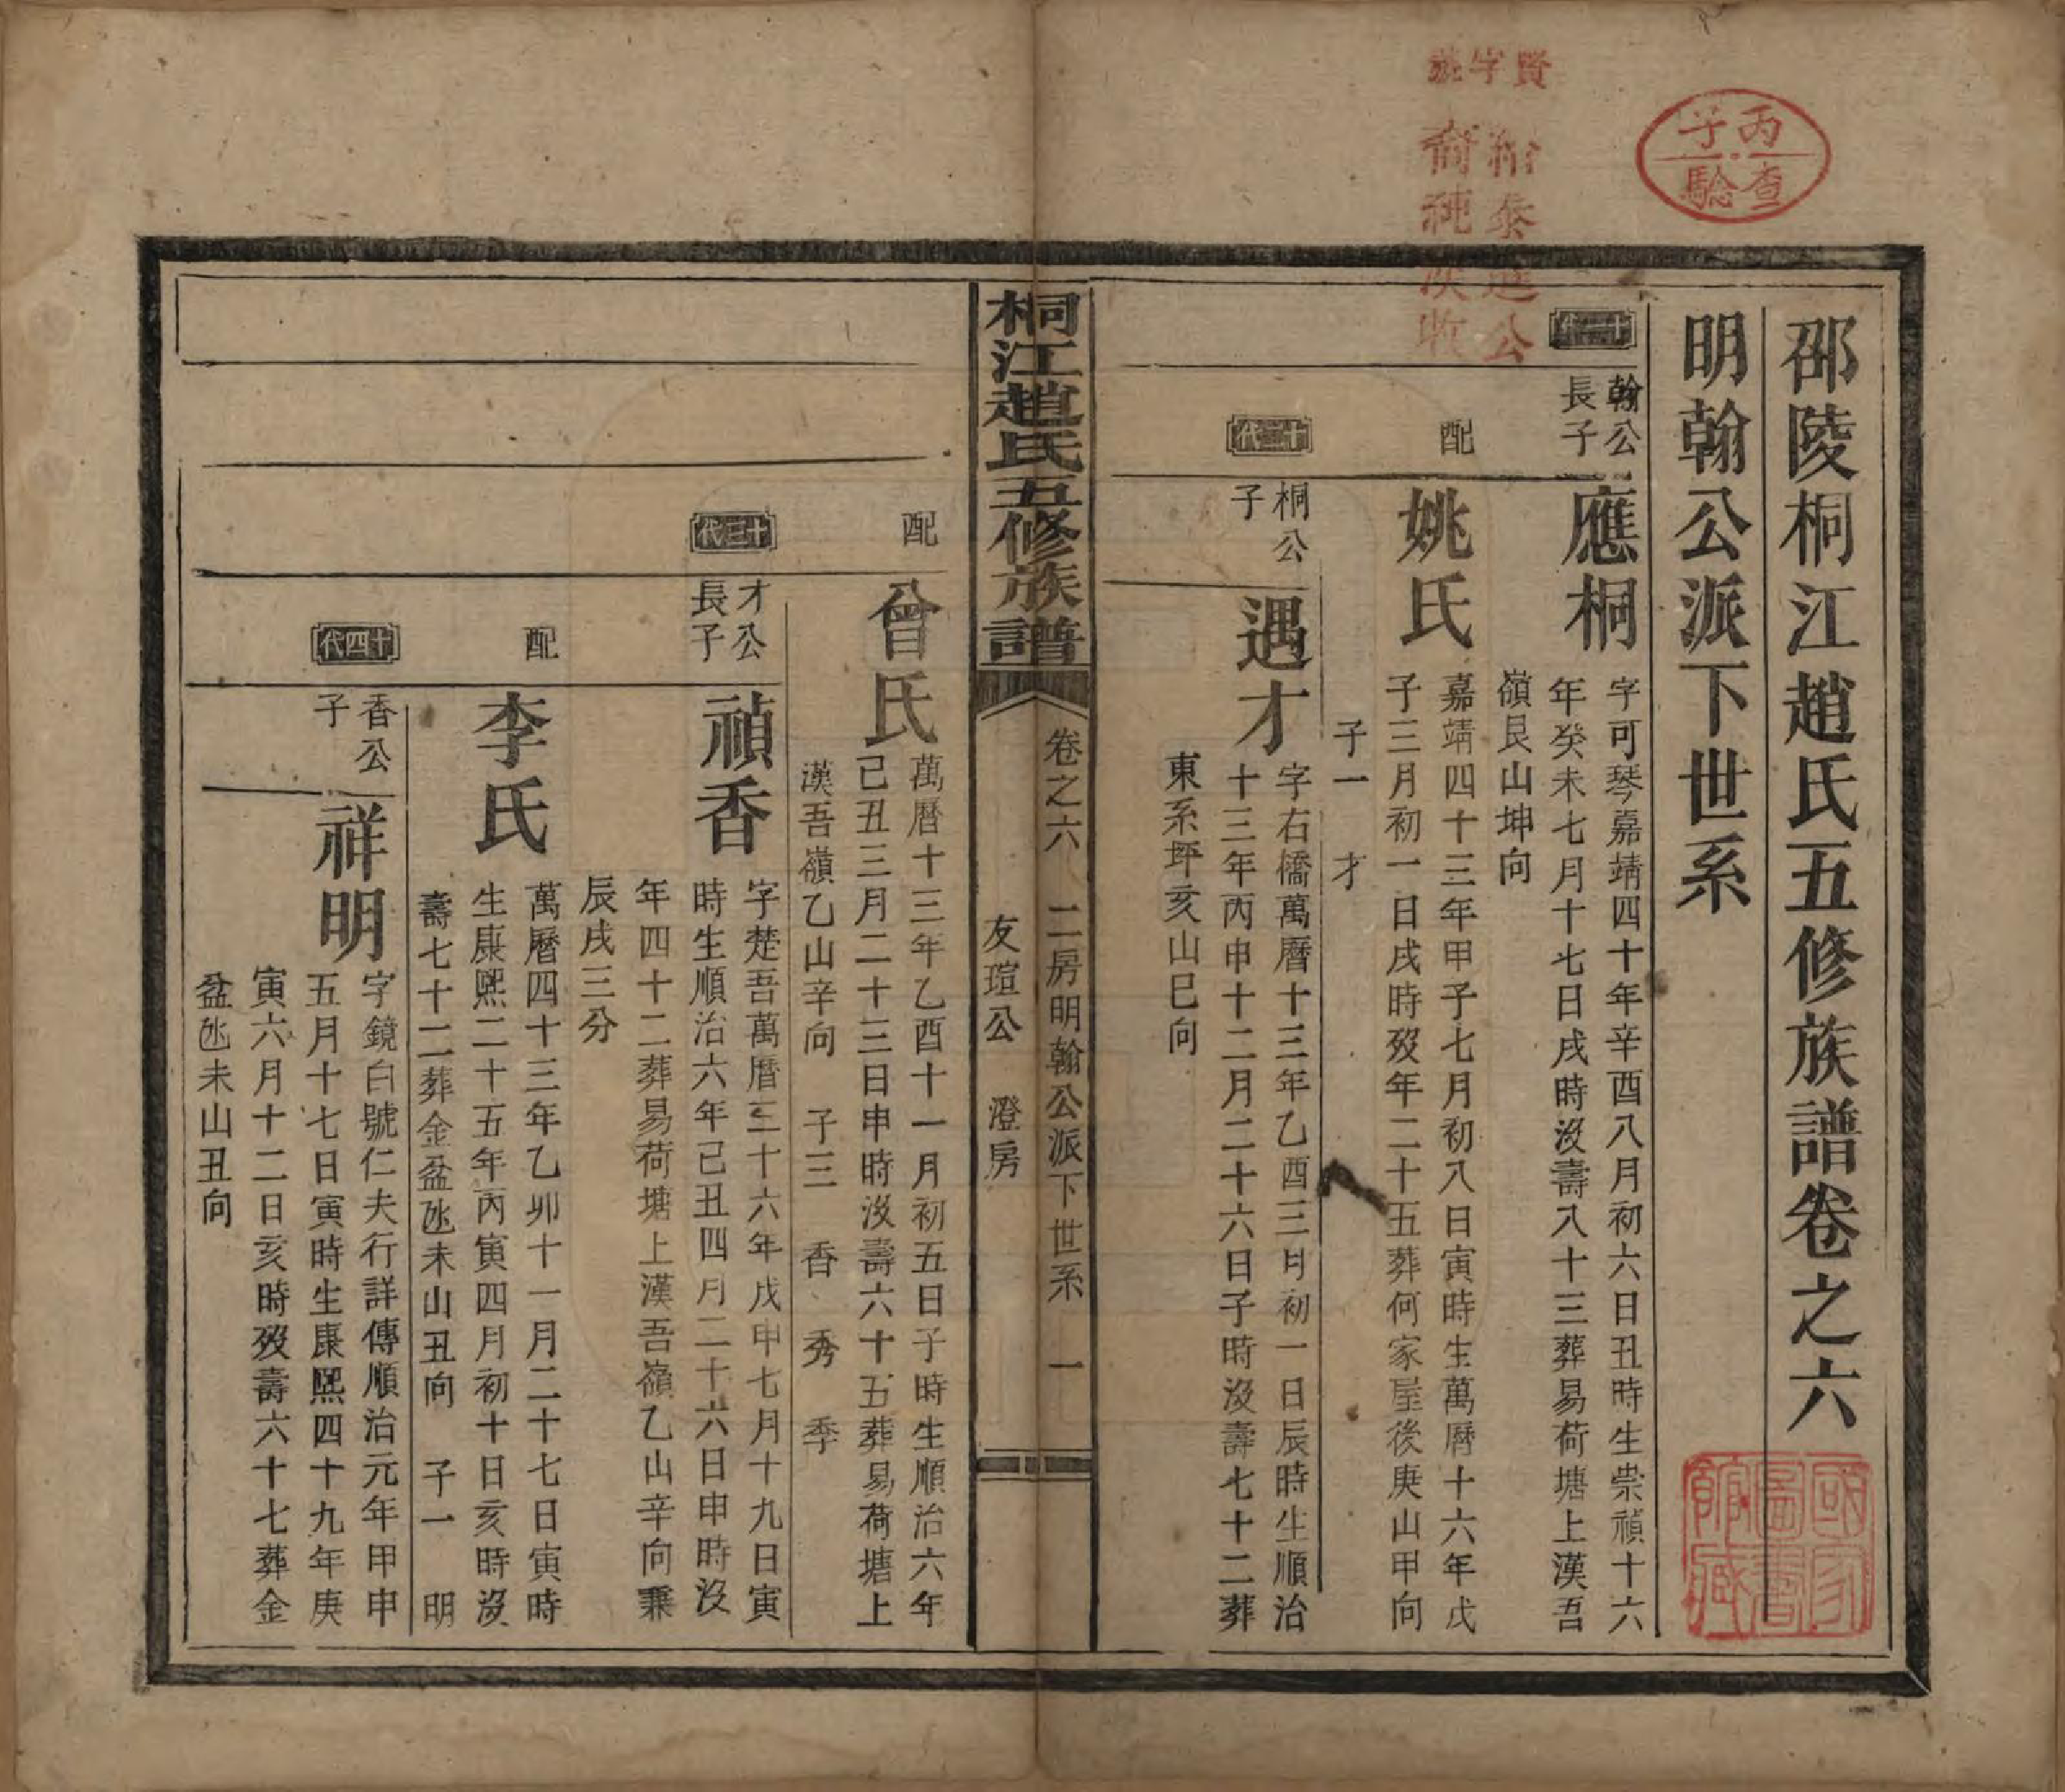 邵陵桐江趙氏五修族譜卷之六
明翰公派下世系
十一代
翰公
長子
應桐
字可琴嘉靖四十年辛酉八月初六日丑時生崇禎十六
年癸未七月十七日戌時沒壽八十三葬易荷塘上漢吾
嶺艮山坤向
配
姚氏
嘉靖四十三年甲子七月初八日寅時生萬曆十六年戊
子三月初一日戌時歿年二十五葬何家屋後庚山甲向
子一　才
十二代
桐公
子
遇才
字右橋萬曆十三年乙酉三月初一日辰時生順治
十三年丙申十二月二十六日子時沒壽七十二葬
東系坪亥山巳向
桐江趙氏五修族譜
卷之六　二房明翰公派下世系　一
友瑄公　澄房
配
曾氏
萬曆十三年乙酉十一月初五日子時生順治六年
己丑三月二十三日申時沒壽六十五葬易荷塘上
漢吾嶺乙山辛向　子三　香　秀　季
十三代
才公
長子
禎香
字楚吾萬曆三十六年戊申七月十九日寅
時生順治六年己丑四月二十六日申時沒
年四十二葬易荷塘上漢吾嶺乙山辛向兼
辰戌三分
配
李氏
萬曆四十三年乙卯十一月二十七日寅時
生康熙二十五年丙寅四月初十日亥時沒
壽七十二葬金盆氹未山丑向　子一　明
十四代
香公
子
祥明
字鏡白號仁夫行詳傳順治元年甲申
五月十七日寅時生康熙四十九年庚
寅六月十二日亥時歿壽六十七葬金
盆氹未山丑向
丙子查驗
賢字號
泰進公
裔純次收
國家圖書館藏